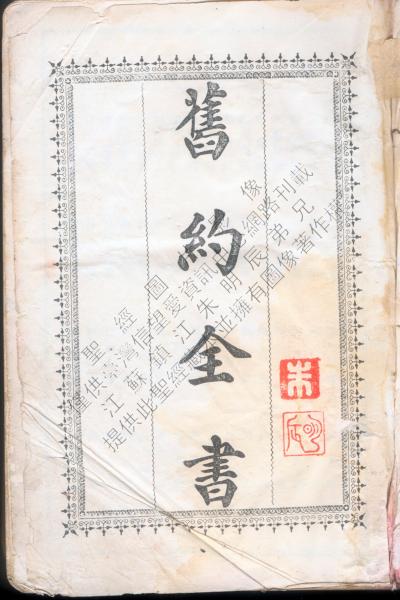 舊約全書
朱
聖經圖像
僅供臺灣信望愛資訊網路刊載
江蘇鎮江朱明辰弟兄
提供此聖經並擁有圖像著作權